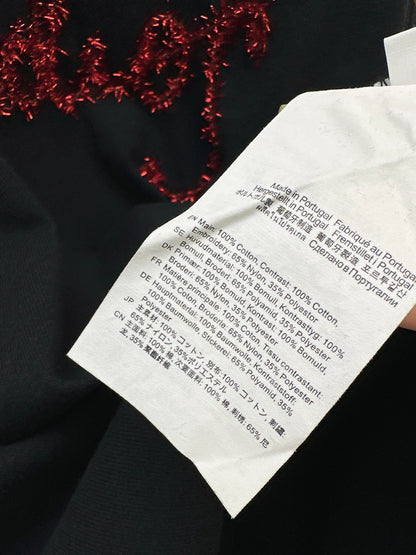 Made in Portugal Fabriqué au Portugal
Hergestellt in Portugal Frenstillet I Portugal
ポルトガル製 葡萄牙制造 葡萄牙製造 포르투갈산
ผลิตในโปรตุเกส Сделано в Португалии
EN Main: 100% Cotton, Contrast: 100% Cotton,
Embroidery: 65% Nylon, 35% Polyester
SE Huvudmaterial: 100% Bomull, Kontrasttyg: 100%
Bomull, Broderi: 65% Polyamid, 35% Polyester
DK Primær: 100% Bomuld, Kontrast: 100% Bomuld,
Broderi: 65% Nylon, 35% Polyester
FR Matière principale: 100% Coton, Tissu contrastant:
100% Coton, Broderie: 65% Nylon, 35% Polyester
DE Hauptmaterial: 100% Baumwolle, Kontraststoff:
100% Baumwolle, Stickerei: 65% Polyamid, 35%
Polyester
JP 主素材: 100% コットン, 別布: 100% コットン, 刺繍:
65% ナイロン, 35% ポリエステル
CN 主面料: 100% 棉, 次要面料: 100% 棉, 刺绣: 65% 尼
龙, 35% 聚酯纤维